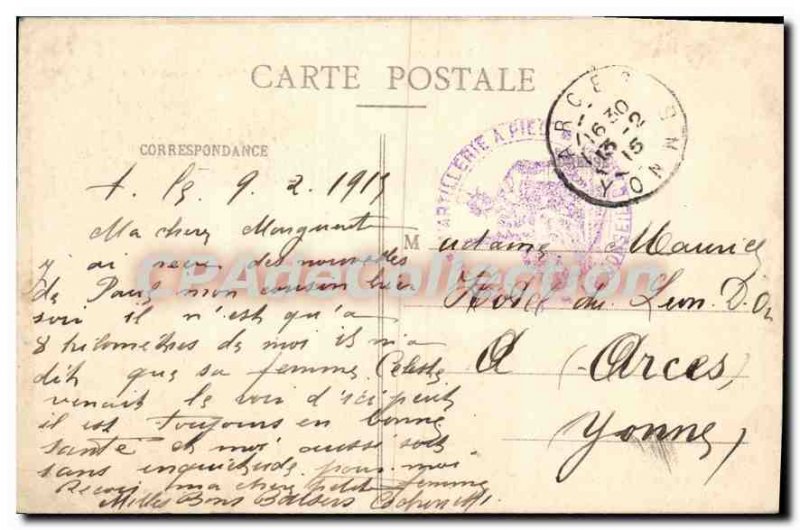 CARTE POSTALE
CORRESPONDANCE
9. 2. 1915
Ma chere Marguerit
j ai recu des nouvelles
de Paul mon cousin hier
soir il n'est qu'a
8 kilometres de moi il m'a
dit que sa femme Celeste
venait le voir d'ici peut
il est toujours en bonne
santé et moi aussi soit
sans inquietude pour moi
Recoit ma chere petit femme
Milles Bons Baisers
ARTILLERIE A PIED
ARCES
16 30
13 - 2
15
YONNE
M adame Maurice
Hotel du Lion D'Or
A Arces
Yonne
CPAdeCollection